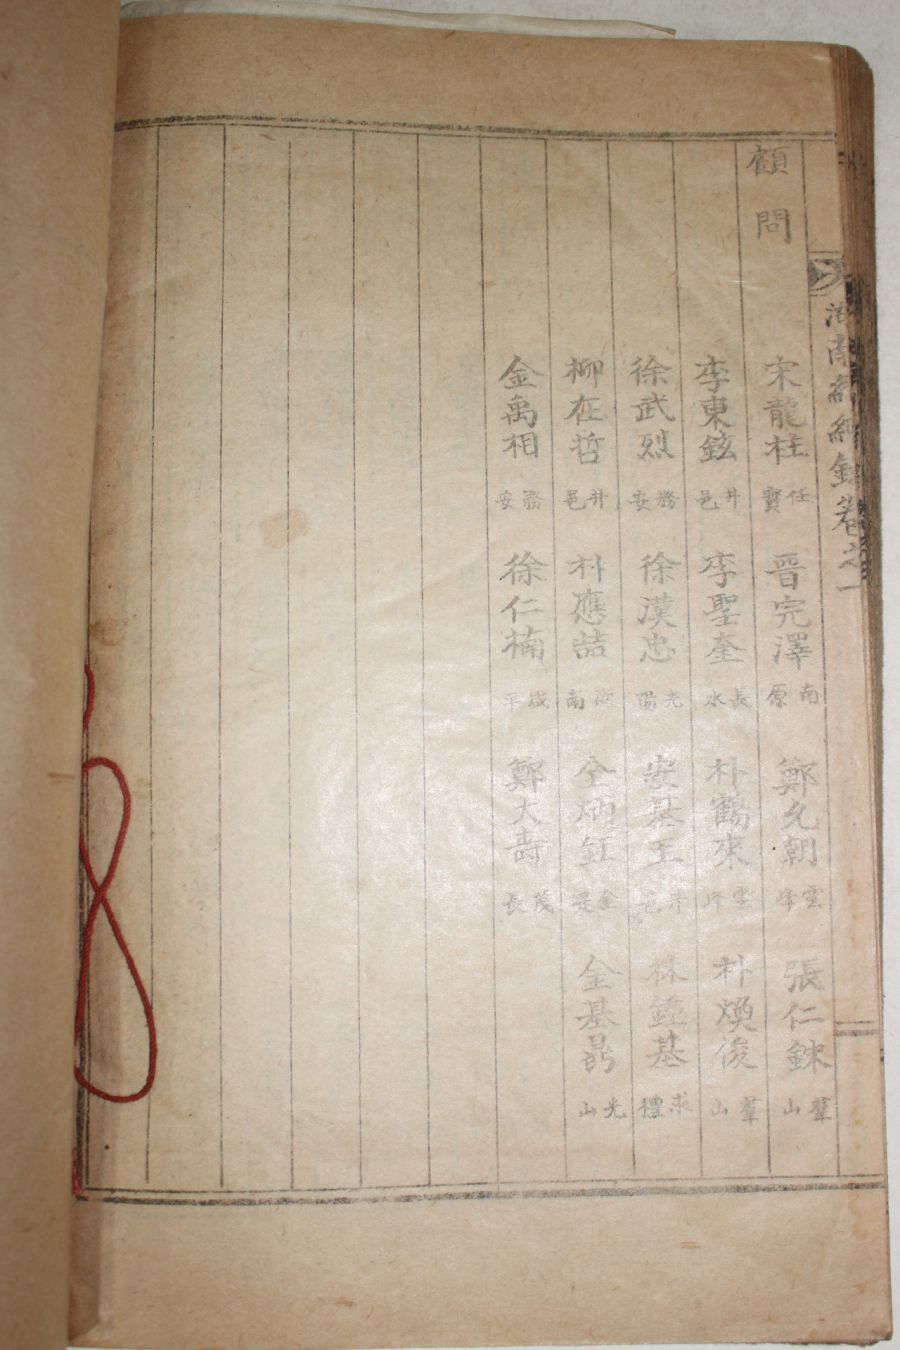 顧問
宋龍柱 任實 晋完澤 南原 鄭久朝 雲峰 張仁銖 羣山
李東鉉 井邑 李聖奎 長水 朴鶴來 雲峰 朴煥俊 羣山
徐武烈 務安 徐漢忠 光陽 安基王 井邑 林鍾基 求禮
柳在哲 井邑 朴應喆 海南 全炳鈺 金堤 金基 光山
金禹相 務安 徐仁楠 咸平 鄭大壽 茂長
湖南 卷之一